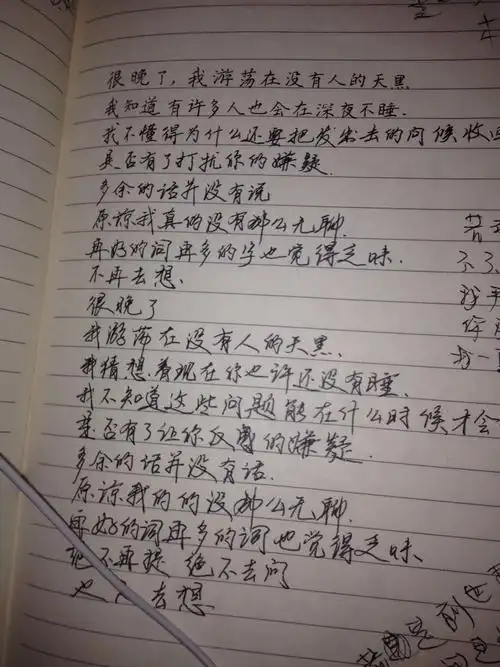 很晚了，我游荡在没有人的天黑
我知道有许多人也会在深夜不睡.
我不懂得为什么还要把发出去的问候收回
是否有了打扰你的嫌疑.
多余的话并没有说
原谅我真的没有那么无聊.
再好的词再多的字也觉得乏味.
不再去想.
很晚了
我游荡在没有人的天黑.
我猜想.着现在你也许还没有睡.
我不知道这些问题能在什么时候才会
是否有了让你反感的嫌疑.
多余的话并没有话.
原谅我的的没那么无聊.
再好的词再多的词也觉得乏味、
绝不再 绝不去问
也 去想